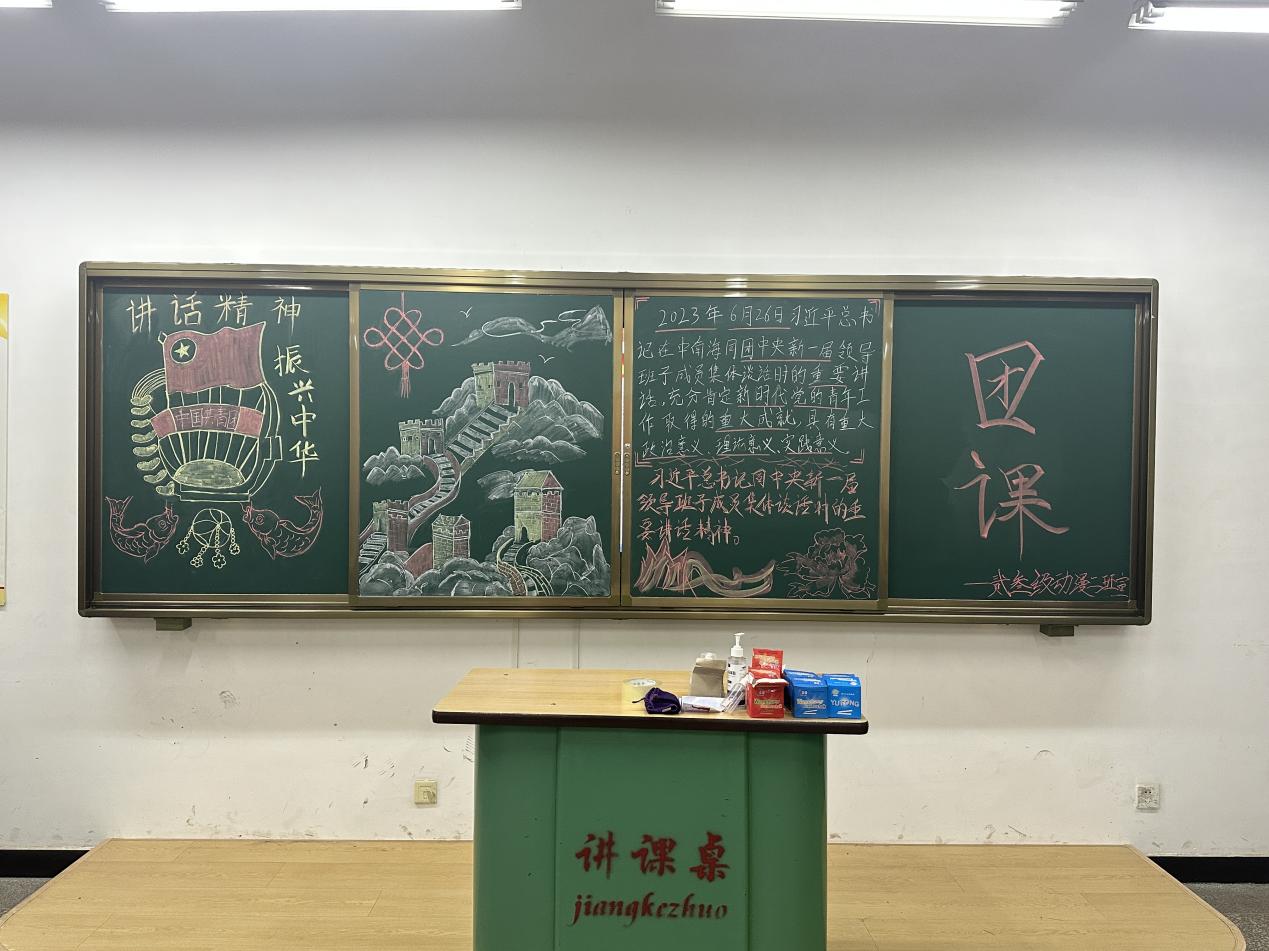 讲话精神
振兴中华
中国共青团
2023年6月26日习近平总书
记在中南海同团中央新一届领导
班子成员集体谈话时的重要讲
话,充分肯定新时代党的青年工
作取得的重大成就,具有重大
政治意义、理论意义、实践意义
习近平总书记同中央新一届
领导班子成员集体谈话时的重
要讲话精神。
团
课
贰叁级动漫二班宣
YUTONG
讲课桌
jiangkezhuo